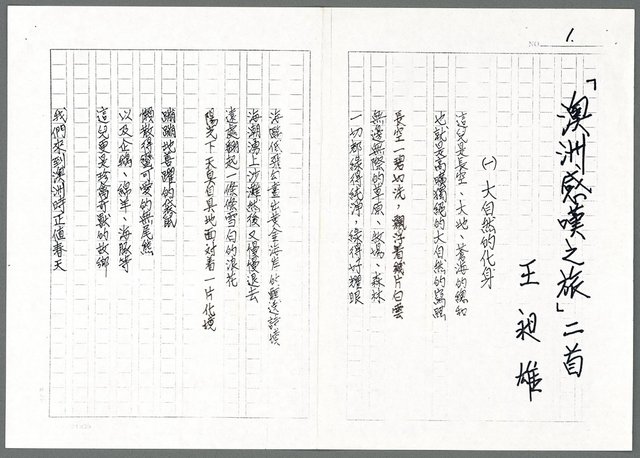 NO. 1.
「澳洲感嘆之旅」二首
王昶雄
(一) 大自然的化身
這兒是長空、大地、蒼海的總和
也就是高曠獨絕的大自然的寫照
長空一碧如洗，飄浮着幾片白雲
無邊無際的草原、牧場、森林
一切都綠得純淨，綠得好耀眼
海鷗低飛，畫出黃金海岸的
海潮湧上沙灘然後又慢慢退去
遠處翻起一條條雪白的浪花
陽光下天真自具地面對着一片化境
蹦蹦地喜躍的袋鼠
懶散得蠻可愛的無尾熊
以及企鵝、綿羊、海豚等
這兒更是珍禽奇獸的故鄉
我們來到澳洲時正值春天